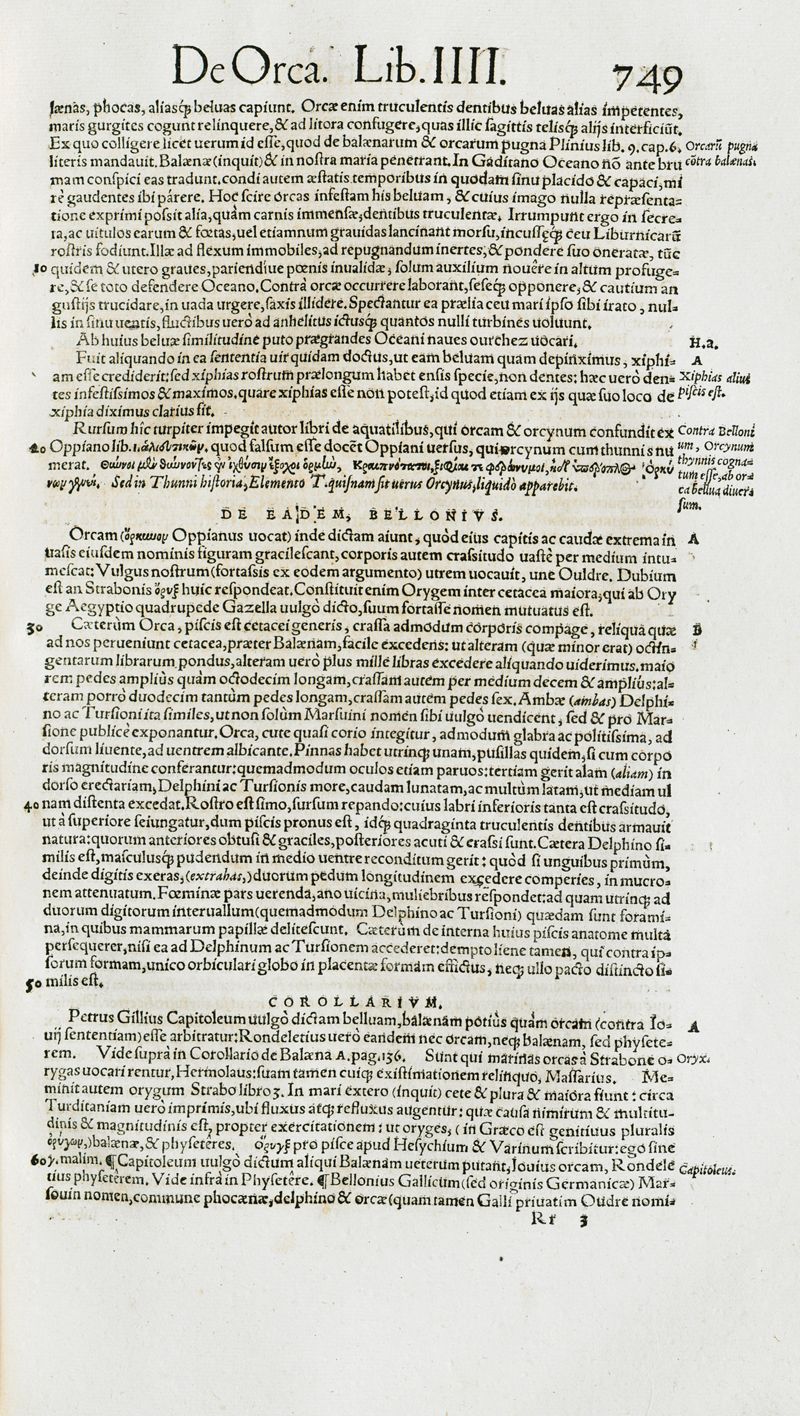 De Orca. Lib. IIII. 749
lænas, phocas, aliasq́; beluas capiunt. Orcæ enim truculentis dentibus beluas alias impetentes,
maris gurgites cogunt relinquere, & ad litora confugere, quas illic sagittis telisq́; alijs interficiũt.
Ex quo colligere licet uerum id esse, quod de balænarum & orcarum pugna Plinius lib. 9. cap. 6. Orcarũ pugna
literis mandauit. Balænæ (inquit) & in nostra maria penetrant. In Gaditano Oceano nõ ante bru cõtra balænas.
mam conspici eas tradunt. condi autem æstatis temporibus in quodam sinu placido & capaci, mi
rè gaudentes ibi párere. Hoc scire orcas infestam his beluam, & cuius imago nulla repræsenta-
tione exprimi possit alia, quàm carnis immensæ, dentibus truculentæ. Irrumpunt ergo in secre-
ta, ac uitulos earum & fœtas, uel etiamnum grauidas lancinant morsu, incussęq́; ceu Liburnicarũ
rostris fodiunt. Illæ ad flexum immobiles, ad repugnandum inertes, & pondere suo oneratæ, tũc
10 quidem & utero graues, pariendiue pœnis inualidæ, solum auxilium nouêre in altum profuge-
re, & se toto defendere Oceano. Contrà orcæ occurrere laborant, seseq́; opponere, & cautium an
gustijs trucidare, in uada urgere, saxis illidere. Spectantur ea prælia ceu mari ipso sibi irato, nul-
lis in sinu uentis, fluctibus uerò ad anhelitus ictusq́; quantos nulli turbines uoluunt.
Ab huius beluæ similitudine puto prægrandes Oceani naues ourchez uocari. H. a.
Fuit aliquando in ea sententia uir quidam doctus, ut eam beluam quam depinximus, xiphi- A
am esse crediderit: sed xiphias rostrum prælongum habet ensis specie, non dentes: hæc uerò den- Xiphias aliui
tes infestissimos & maximos. quare xiphias esse non potest, id quod etiam ex ijs quæ suo loco de piscis est.
xiphia diximus clarius fit.
Rursum hîc turpiter impegit autor libri de aquatilibus, qui orcam & orcynum confundit ex Contra Belloni
20 Oppiano lib. 1. ἁλιευτικῶν. quod falsum esse docẽt Oppiani uersus, qui orcynum cum thunnis nu um, Orcynum
merat. Θύννοι μὲν θύνοντες ἐν ἰχθύσιν ἔξοχοι ὁρμὼν, Κραιπνότατοι, ξιφίαι τε φερώνυμοι, ἠδ' ὑπέροπλος Ὀρκύ thynnis cogna-
νων γενεή. Sed in Thunni historia, Elemento T. quisnam sit uerus Orcynus, liquidò apparebit. tum esse, ab or-
ca bellua diuer
sum.
DE EADEM, BELLONIVS.
Orcam (ὄρκυνον Oppianus uocat) inde dictam aiunt, quòd eius capitis ac caudæ extrema in A
uasis eiusdem nominis figuram gracilescant, corporis autem crassitudo uastè per medium intu-
mescat: Vulgus nostrum (fortassis ex eodem argumento) utrem uocauit, une Ouldre. Dubium
est an Strabonis ὄρυξ huic respondeat. Constituit enim Orygem inter cetacea maiora, qui ab Ory
ge Aegyptio quadrupede Gazella uulgò dicto, suum fortasse nomen mutuatus est.
30 Cæterùm Orca, piscis est cetacei generis, crassa admodum corporis compage, reliqua quæ B
ad nos perueniunt cetacea, præter Balænam, facile excedens: ut alteram (quæ minor erat) octin-
gentarum librarum pondus, alteram uerò plus mille libras excedere aliquando uiderimus. maio
rem pedes ampliùs quàm octodecim longam, crassam autem per medium decem & ampliùs: al-
teram porrò duodecim tantùm pedes longam, crassam autem pedes sex. Ambæ (ambas) Delphi-
no ac Tursioni ita similes, ut non solùm Marsuini nomen sibi uulgò uendicent, sed & pro Mar-
sione publicè exponantur. Orca, cute quasi corio integitur, admodum glabra ac politissima, ad
dorsum liuente, ad uentrem albicante. Pinnas habet utrinq; unam, pusillas quidem, si cum corpo
ris magnitudine conferantur: quemadmodum oculos etiam paruos: tertiam gerit alam (aliam) in
dorso erectariam, Delphini ac Tursionis more, caudam lunatam, ac multùm latam, ut mediam ul
40 nam distenta excedat. Rostro est simo, sursum repando: cuius labri inferioris tanta est crassitudo,
ut à superiore seiungatur, dum piscis pronus est, idq́; quadraginta truculentis dentibus armauit
natura: quorum anteriores obtusi & graciles, posteriores acuti & crassi sunt. Cætera Delphino si-
milis est, masculusq́; pudendum in medio uentre reconditum gerit: quòd si unguibus primùm,
deinde digitis exeras, (extrahas,) duorum pedum longitudinem excedere comperies, in mucro-
nem attenuatum. Fœminæ pars uerenda, ano uicina, muliebribus respondet: ad quam utrinq; ad
duorum digitorum interuallum (quemadmodum Delphino ac Tursioni) quædam sunt forami-
na, in quibus mammarum papillæ delitescunt. Cæterùm de interna huius piscis anatome multa
persequerer, nisi ea ad Delphinum ac Tursionem accederet: dempto liene tamen, qui contra ip-
sorum formam, unico orbiculari globo in placentæ formam effictus, neq; ullo pacto distincto si-
50 milis est.
COROLLARIVM.
Petrus Gillius Capitoleum uulgò dictam belluam, balænam potiùs quàm orcam (contra Io- A
uij sententiam) esse arbitratur: Rondeletius uerò eandem nec orcam, neq; balænam, sed physete-
rem. Vide suprà in Corollario de Balæna A. pag. 136. Sunt qui marinas orcas à Strabone o- Oryx.
rygas uocari rentur, Hermolaus: suam tamen cuiq; existimationem relinquo, Massarius. Me-
minit autem orygum Strabo libro 3. In mari extero (inquit) cete & plura & maiora fiunt: circa
Turditaniam uerò imprimis, ubi fluxus atq; refluxus augentur: quæ causa nimirum & multitu-
dinis & magnitudinis est, propter exercitationem: ut oryges, (in Græco est genitiuus pluralis
ὀρύγων,) balænæ, & physeteres. ὄρυγξ pro pisce apud Hesychium & Varinum scribitur: ego sine
60 γ. malim. ¶ Capitoleum uulgò dictum aliqui Balænam ueterum putant, Iouius orcam, Rondele Capitoleus.
tius physeterem. Vide infrà in Physetêre. ¶ Bellonius Gallicum (sed originis Germanicæ) Mar-
souin nomen, commune phocænæ, delphino & orcæ (quam tamen Galli priuatim Oudre nomi-
Rr 3